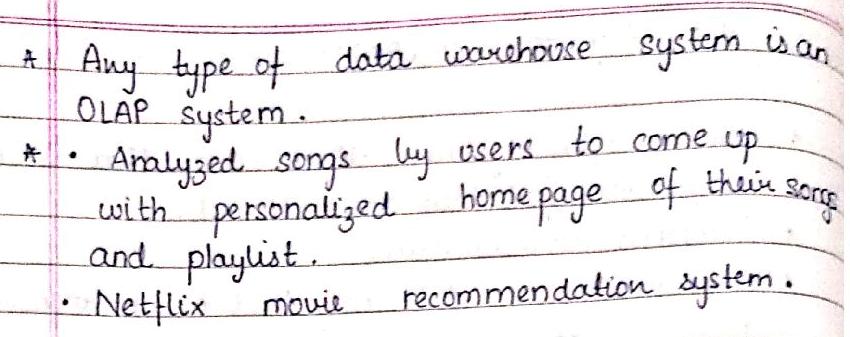 * Any type of data warehouse system is an
OLAP system.
* • Analyzed songs by users to come up
with personalized home page of their songs
and playlist.
• Netflix movie recommendation system.